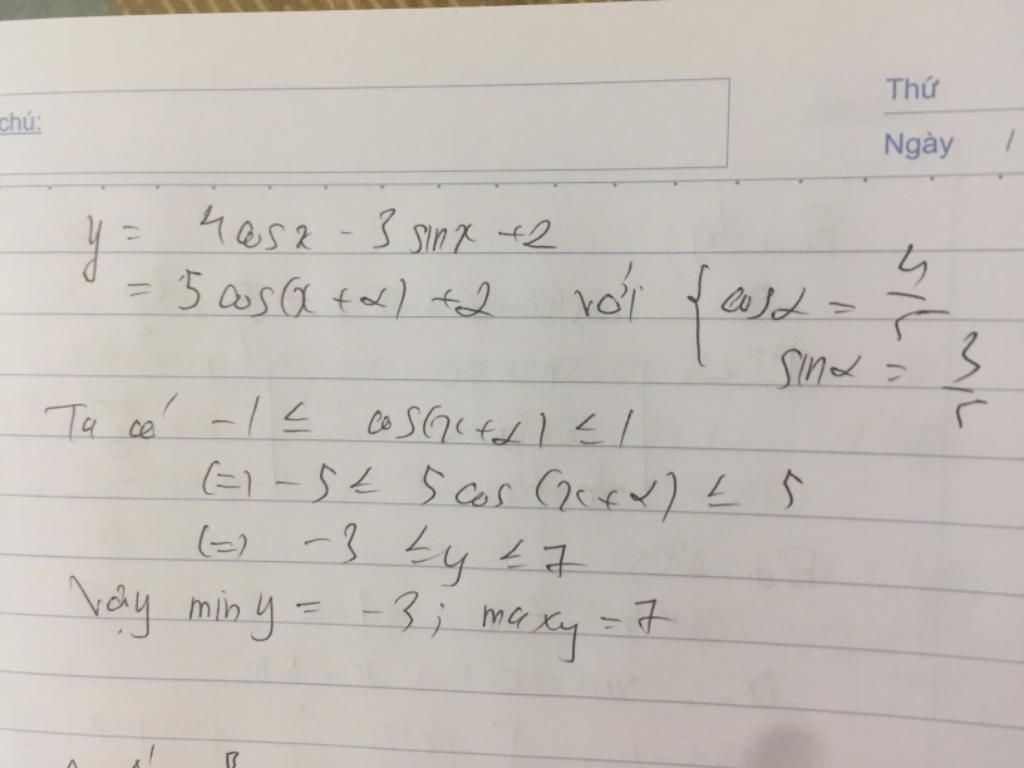 Thứ
chú:
Ngày /
y = 4cosx - 3 sinx +2
= 5 cos(x + α) +2 với { cosα = 4/5
sinα = 3/5
Ta có -1 ≤ cos(x+α) ≤ 1
(=) -5 ≤ 5 cos (x+α) ≤ 5
(=) -3 ≤ y ≤ 7
Vậy min y = -3 ; maxy = 7